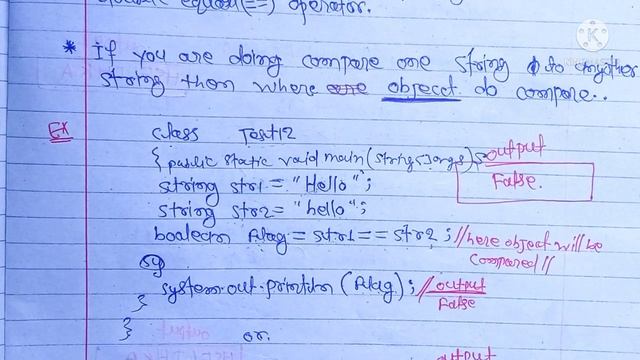 equal(==) operator.
* If you are doing compare one string to another
string then where object do compare..
Ex
class Test12
{ public static void main(string[]args)
output
False.
string str1 = "Hello";
string str2 = "hello";
boolean flag = str1 == str2 ; //here object will be
compared //
sy
system.out.println (flag); // output
False
}
}
or.
output